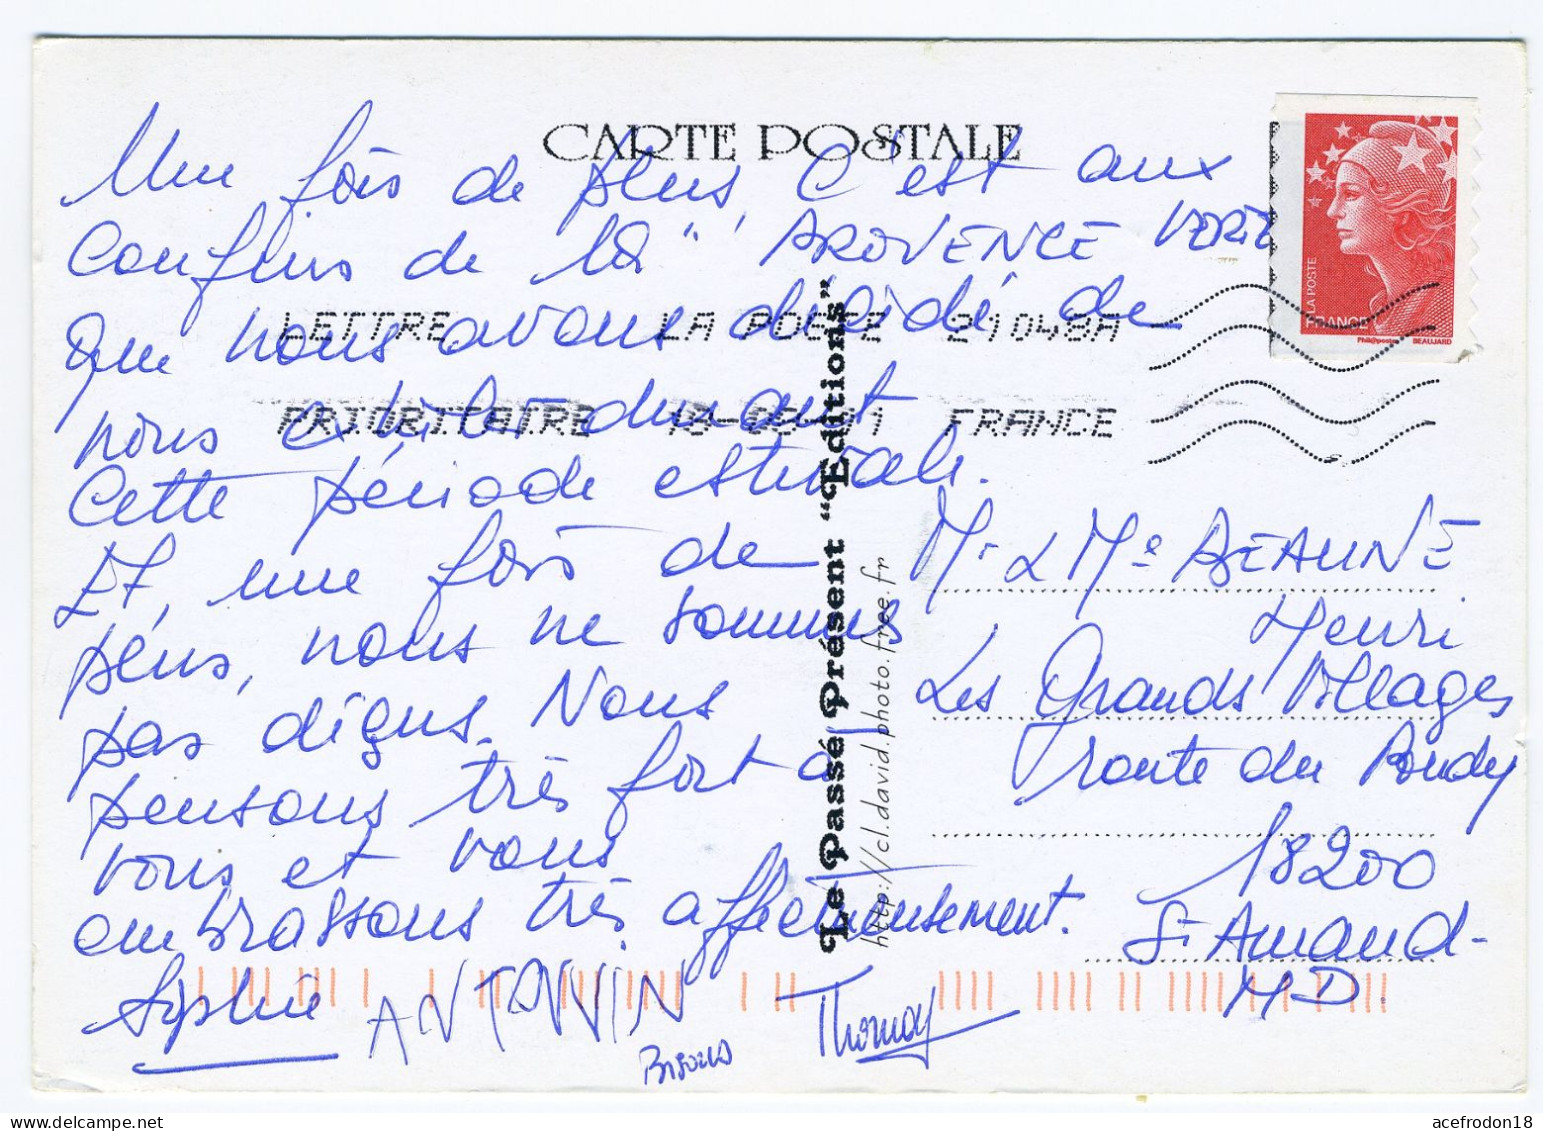 CARTE POSTALE
Une fois de plus, c'est aux
confins de la " PROVENCE VERTE
que nous avons décidé de
nous exiler durant
cette période estivale.
Et, une fois de
plus, nous ne sommes
pas déçus. Nous
pensons très fort à
vous et vous
embrassons très affectueusement.
Sophie ANTONIN Thomas
Bisous
LETTRE LA POSTE 21048A
PRIORITAIRE FRANCE
LA POSTE
FRANCE
Phil@poste BEAUJARD
Le Passé Présent "Editions"
http://cl.david.photo.free.fr
Mr & Me BEAUNE
Henri
Les Grands Villages
route du
18200
St Amand-
M D.
acefrodon18